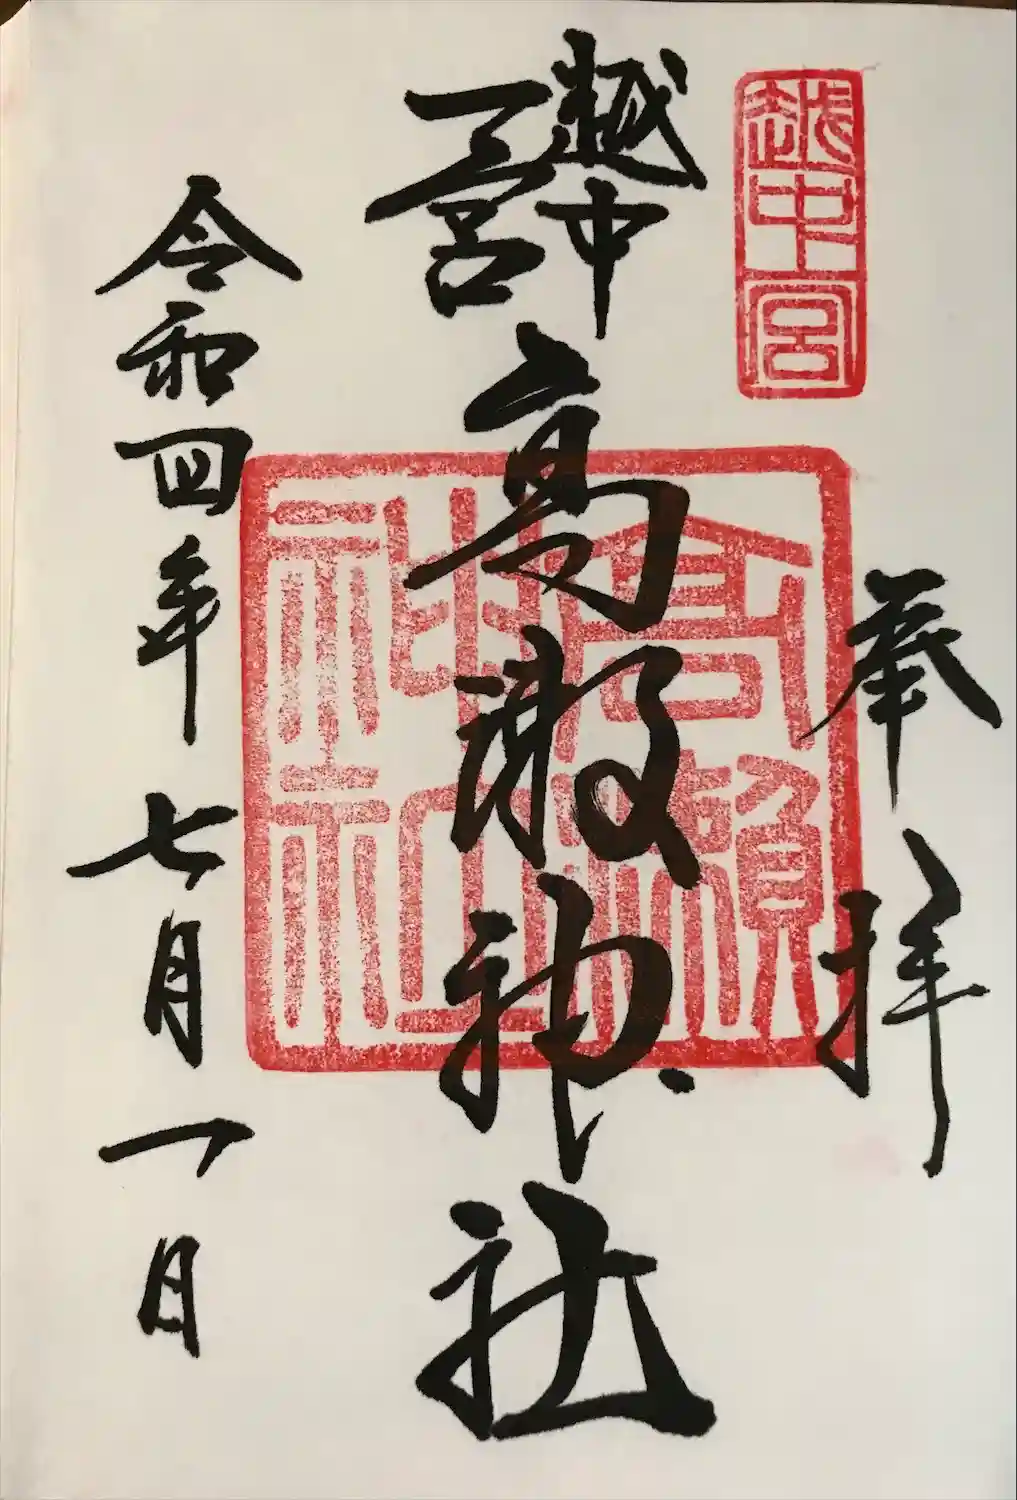 越中一宮
奉拝
越中
一宮
高瀬神社
高瀬神社
令和四年七月一日